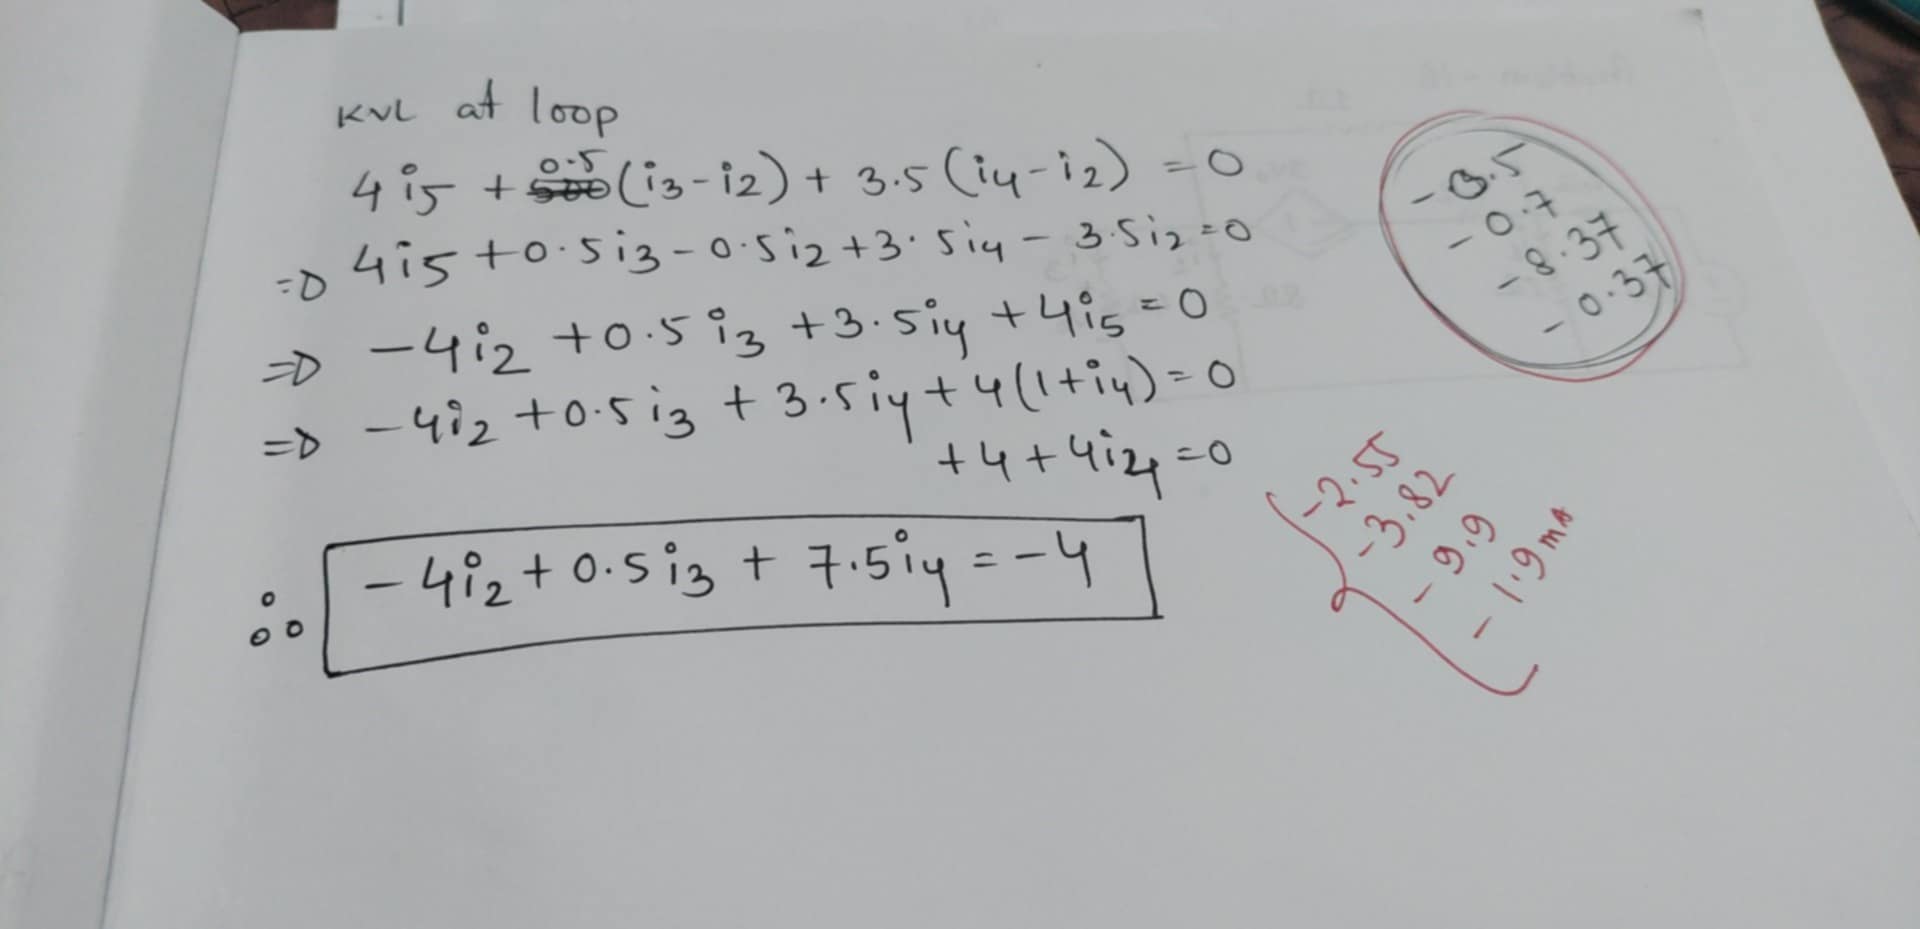 KVL at loop
4i5 + 0.5(i3-i2) + 3.5(i4-i2) = 0
=> 4i5 + 0.5i3 - 0.5i2 + 3.5i4 - 3.5i2 = 0
=> -4i2 + 0.5i3 + 3.5i4 + 4i5 = 0
=> -4i2 + 0.5i3 + 3.5i4 + 4(1+i4) = 0
+4+4i4 = 0
∴ -4i2 + 0.5i3 + 7.5i4 = -4
-0.7
-8.37
-0.37
-2.55
-3.82
-9.9
-1.9mA